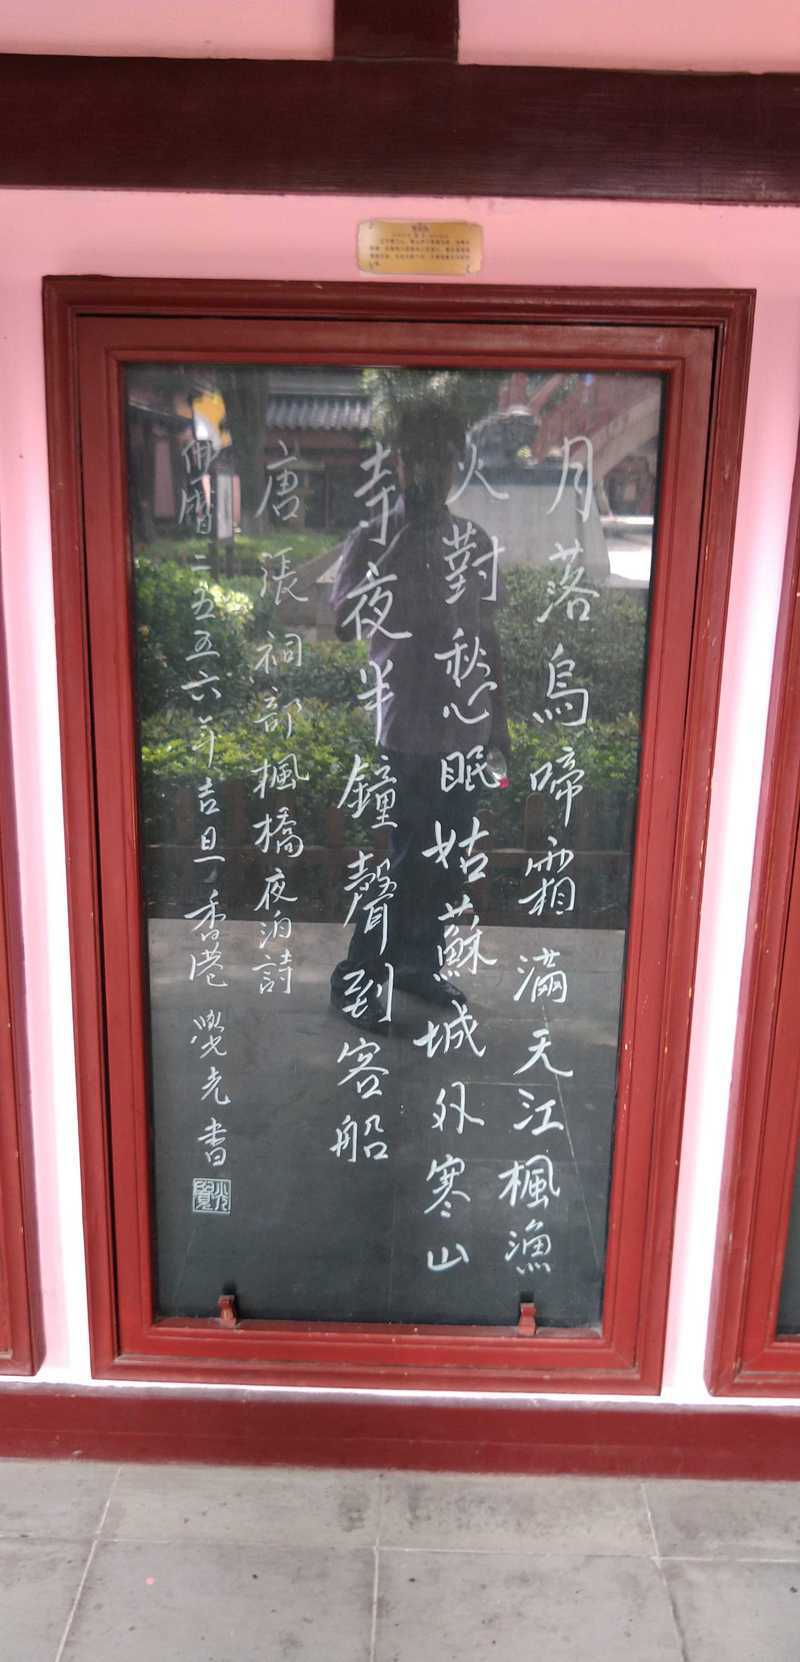 月落烏啼霜滿天江楓漁
火對愁眠姑蘇城外寒山
寺夜半鐘聲到客船
唐張祠部楓橋夜泊詩
佛曆二五五六年吉旦香港覺光書